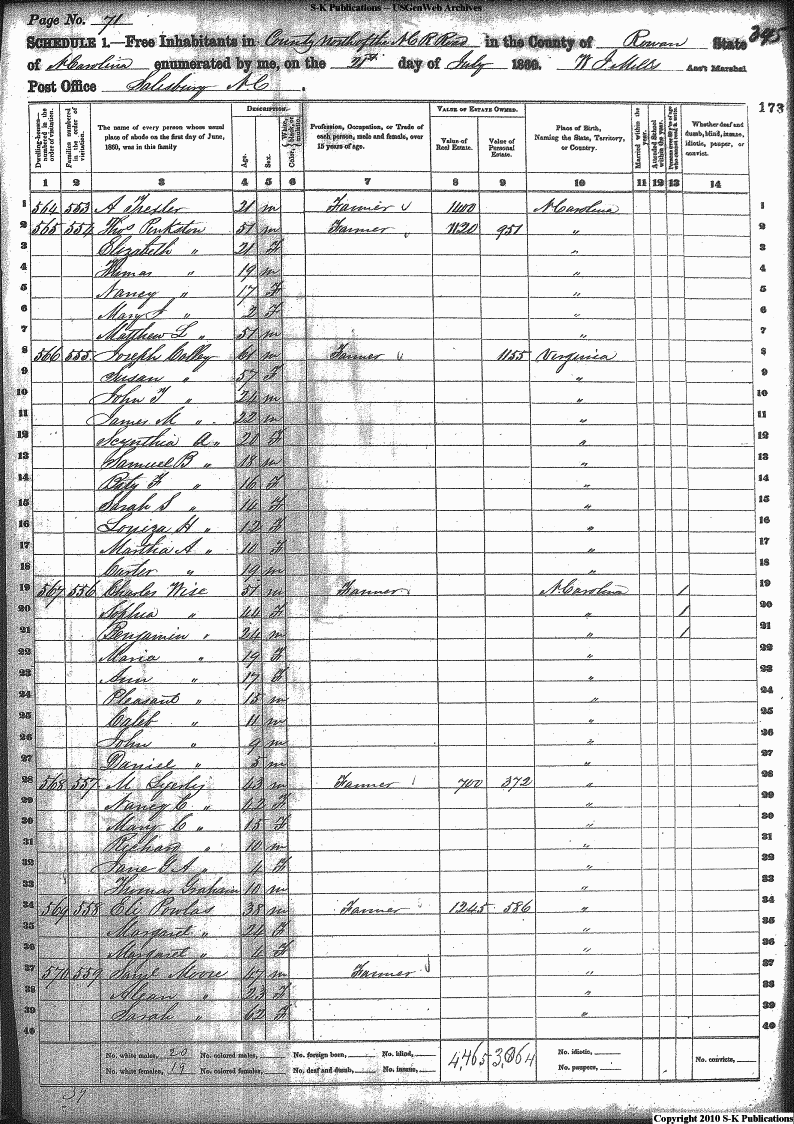 S-K Publications – USGenWeb Archives
Page No. 71
395
SCHEDULE 1.—Free Inhabitants in County North of the N C R Road in the County of Rowan State
of N Carolina enumerated by me, on the 21st day of July 1860. W J Mills Ass't Marshal
Post Office Salisbury N C.
173
Dwelling-houses—numbered in the order of visitation.
Families numbered in the order of visitation.
The name of every person whose usual place of abode on the first day of June, 1860, was in this family
DESCRIPTION.
Age.
Sex.
Color, White, black, or mulatto.
Profession, Occupation, or Trade of each person, male and female, over 15 years of age.
VALUE OF ESTATE OWNED.
Value of Real Estate.
Value of Personal Estate.
Place of Birth, Naming the State, Territory, or Country.
Married within the year.
Attended School within the year.
Whether deaf and dumb, blind, insane, idiotic, pauper, or convict.
1 2 3 4 5 6 7 8 9 10 11 12 13 14
1 564 553 A 21 m Farmer 1400 N Carolina 1
2 565 554 Thos Pinkston 51 m Farmer 1120 951 " 2
3 Elizabeth " 21 F " 3
4 Thomas " 19 m " 4
5 Nancy " 17 F " 5
6 Mary " 2 F " 6
7 Matthew L " 51 m " 7
8 566 555 Joseph 61 m Farmer 1155 Virginia 8
9 Susan " 57 F " 9
10 John F " 24 m " 10
11 James M " 22 m " 11
12 Scynthia A " 20 F " 12
13 Samuel B " 18 m " 13
14 F " 16 F " 14
15 Sarah S " 14 F " 15
16 Louiza H " 12 F " 16
17 Martha A " 10 F " 17
18 Carter " 19 m " 18
19 567 556 Charles Wise 51 m Farmer N Carolina 1 19
20 Sophia " 44 F " 1 20
21 Benjamin " 24 m " 1 21
22 Maria " 19 F " 22
23 Ann " 17 F " 23
24 Pleasant " 15 m " 24
25 Caleb " 11 m " 25
26 John " 9 m " 26
27 Daniel " 5 m " 27
28 568 557 M Lyerly 43 m Farmer 700 372 " 28
29 Nancy C " 42 F " 29
30 Mary C " 15 F " 30
31 Richard " 10 m " 31
32 Jane G A " 4 F " 32
33 Thomas Graham 10 m " 33
34 569 558 Eli Powlas 38 m Farmer 1245 586 " 34
35 Margaret " 24 F " 35
36 Margaret " 4 F " 36
37 570 559 Saml Moore 67 m Farmer " 37
38 " 23 F " 38
39 Sarah " 62 F " 39
40 40
No. white males, 20 No. colored males, No. foreign born, No. blind, 4,465 3,064 No. idiotic, No. convicts,
No. white females, 19 No. colored females, No. deaf and dumb, No. insane, No. paupers,
39
Copyright 2010 S-K Publications